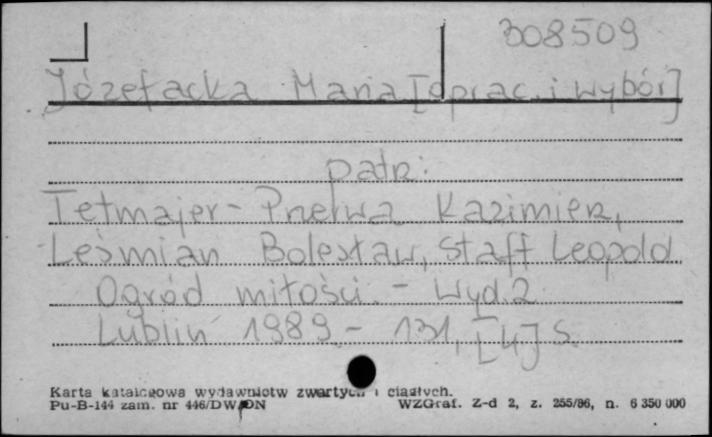 308509
Józefacka Maria [oprac. i wybór]
patrz:
Tetmajer-Przerwa Kazimierz,
Leśmian Bolesław, Staff Leopold
Ogród miłości. - Wyd. 2
Lublin 1989. - 131, [4] s.
Karta katalogowa wydawnictw zwartych i ciągłych.
Pu-B-144 zam. nr 446/DW/DN WZGraf. Z-d 2, z. 255/86, n. 6 350 000